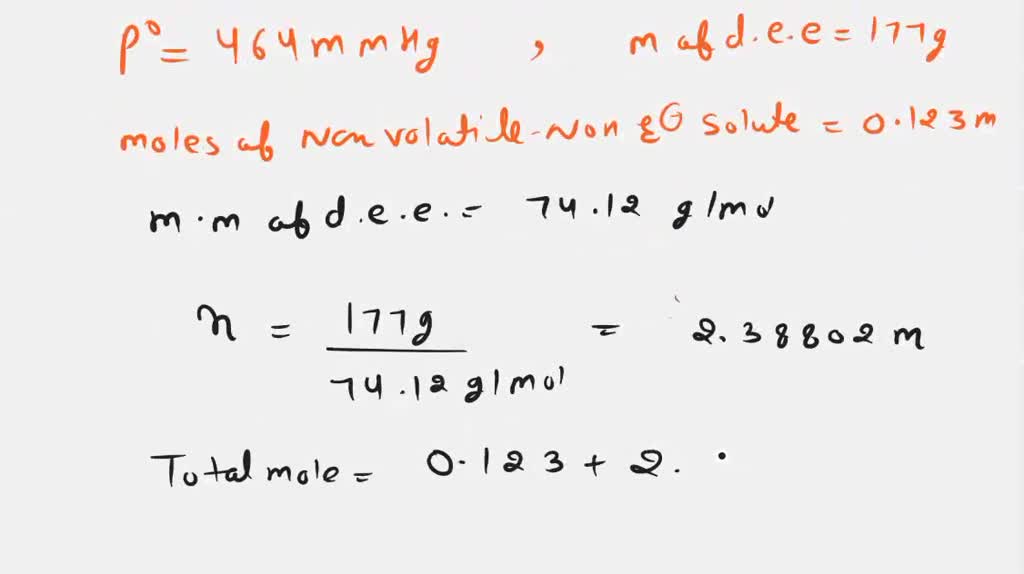 P° = 464 mmHg , m of d.e.e = 177g
moles of Non volatile-Non solute = 0.123m
m.m of d.e.e. = 74.12 g/mol
n = 177g / 74.12 g/mol = 2.38802 m
Total mole = 0.123 + 2.